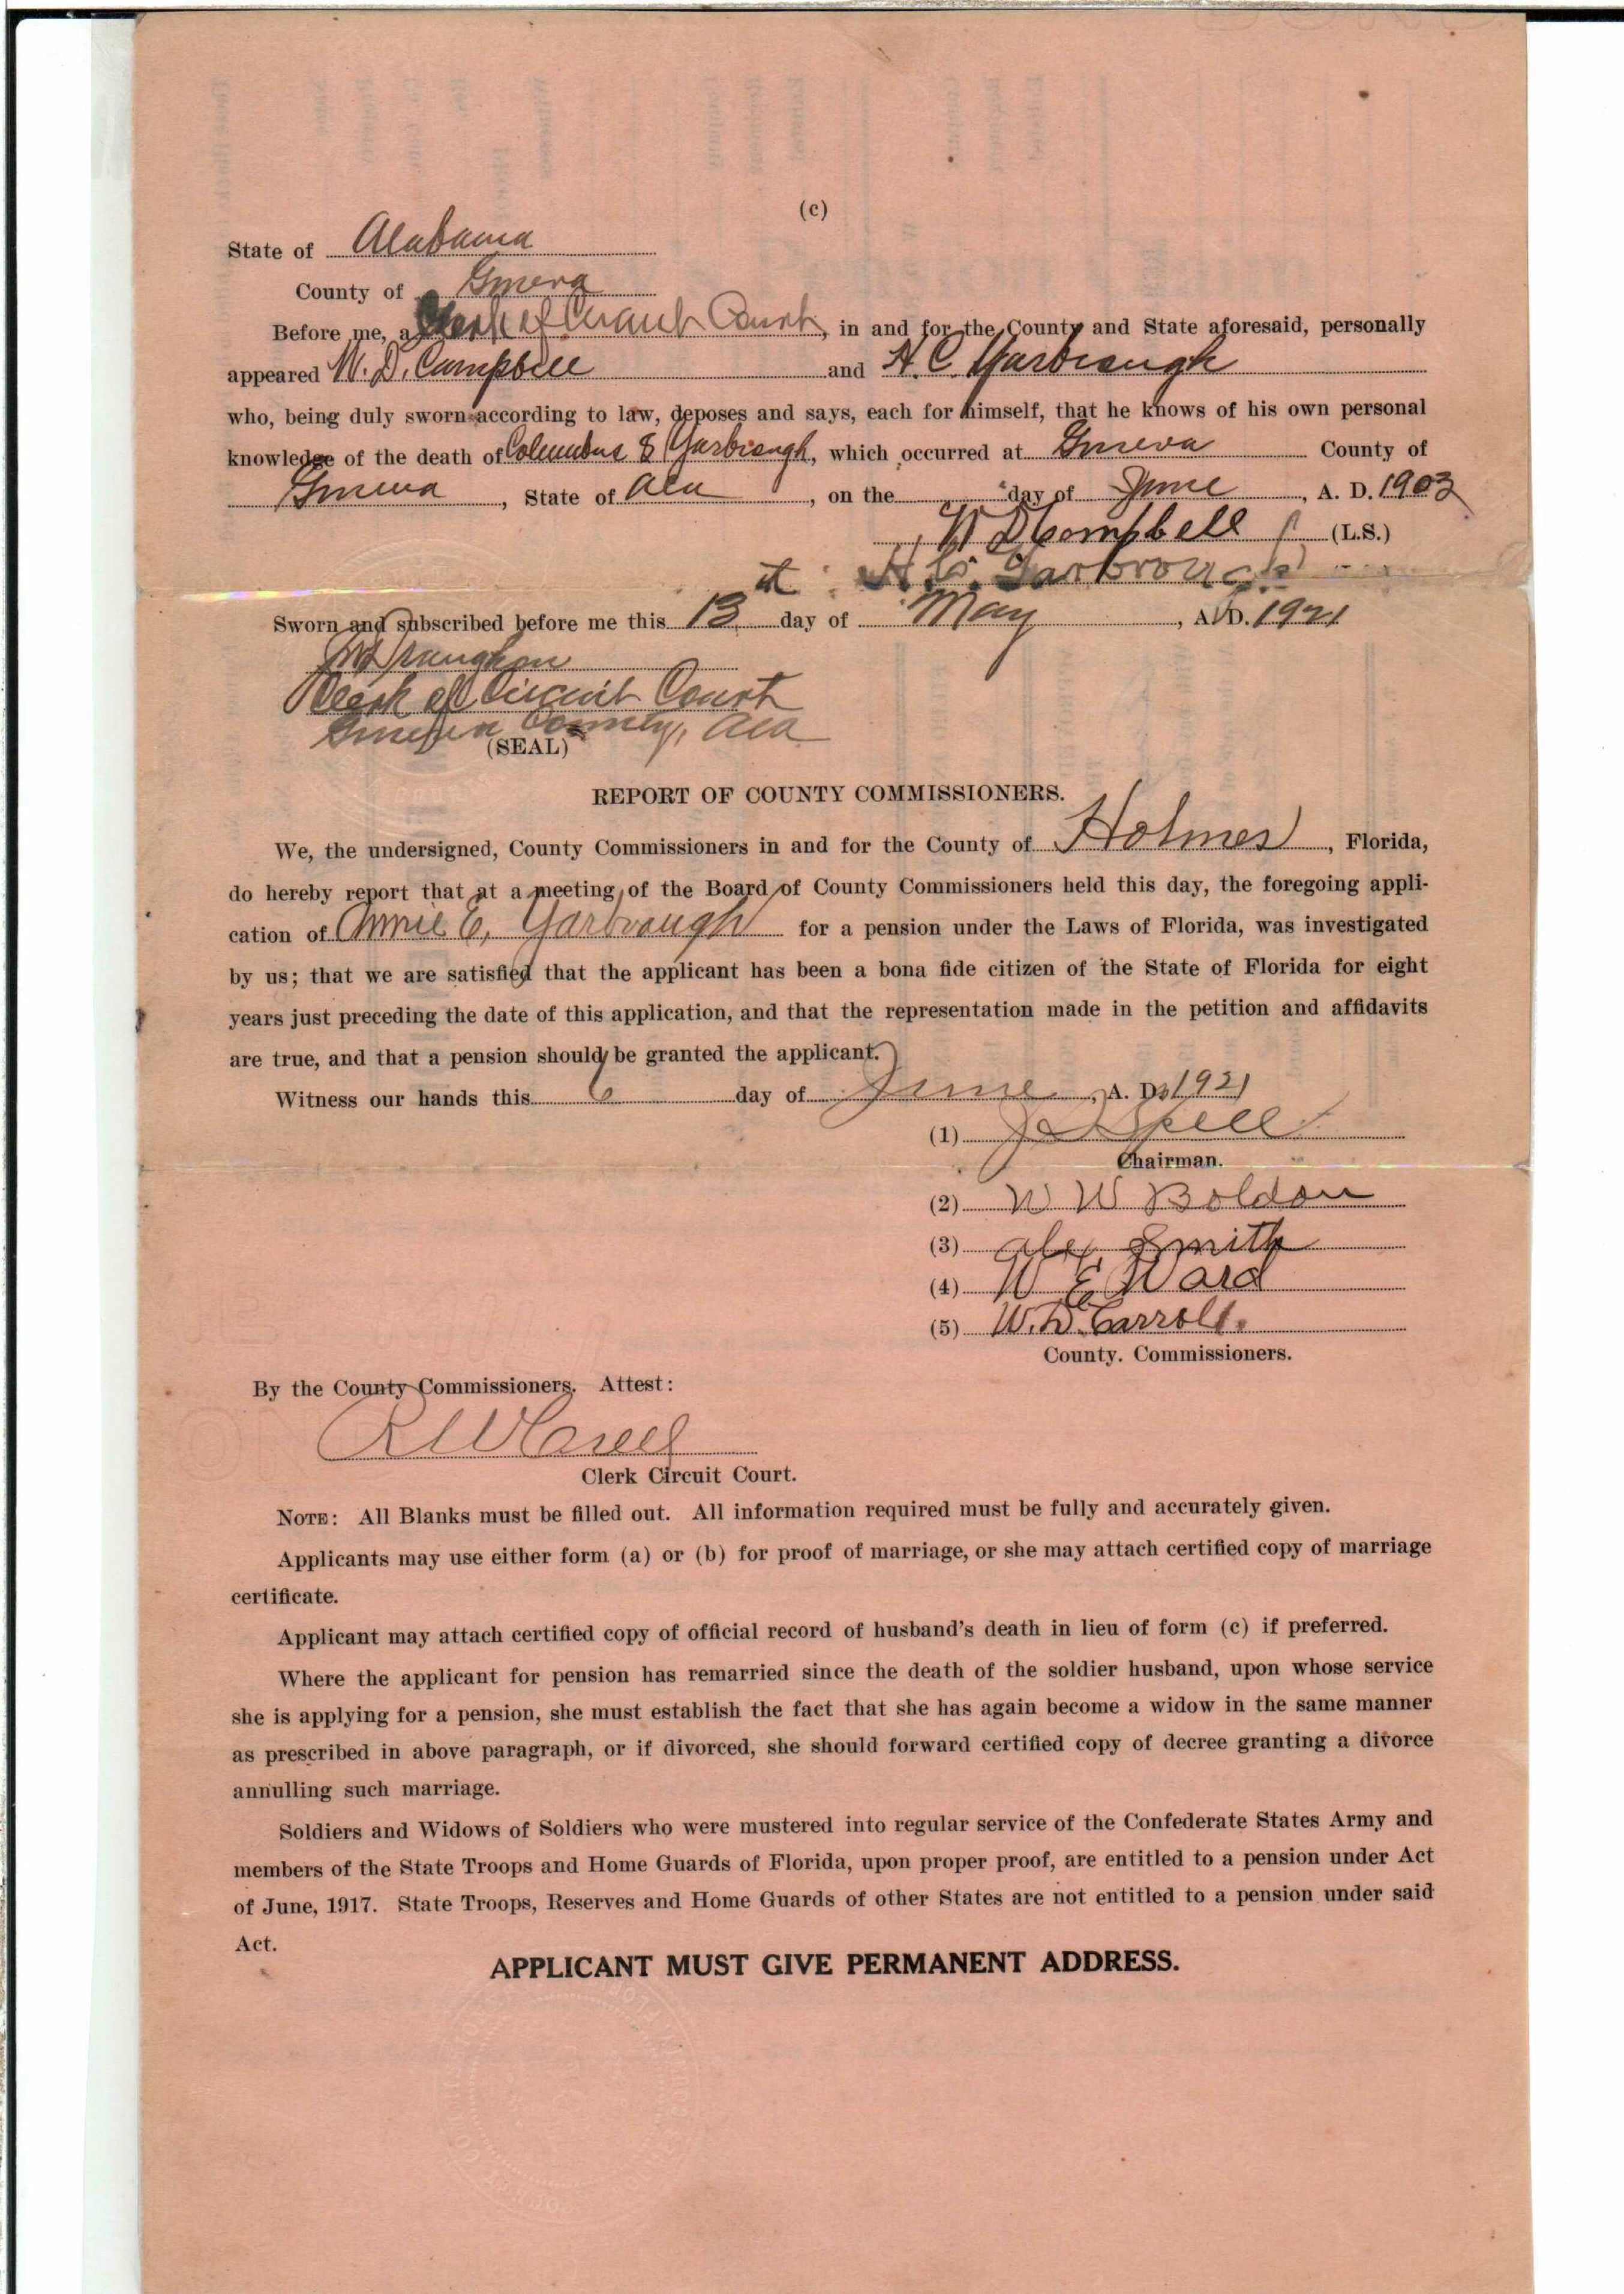 (c)
State of Alabama
County of Geneva
Before me, a Clerk of Circuit Court, in and for the County and State aforesaid, personally
appeared W. D. Campbell and H. C. Yarbrough
who, being duly sworn according to law, deposes and says, each for himself, that he knows of his own personal
knowledge of the death of Columbus Yarbrough, which occurred at Geneva County of
Geneva, State of Ala, on the day of June, A. D. 1903
W D Campbell (L.S.)
H. C. Yarbrough
Sworn and subscribed before me this 13 day of May, A. D. 1921
Clerk of Circuit Court
Geneva County, Ala
(SEAL)
REPORT OF COUNTY COMMISSIONERS.
We, the undersigned, County Commissioners in and for the County of Holmes, Florida,
do hereby report that at a meeting of the Board of County Commissioners held this day, the foregoing appli-
cation of Annie E. Yarbrough for a pension under the Laws of Florida, was investigated
by us; that we are satisfied that the applicant has been a bona fide citizen of the State of Florida for eight
years just preceding the date of this application, and that the representation made in the petition and affidavits
are true, and that a pension should be granted the applicant.
Witness our hands this 6 day of June, A. D. 1921
(1) Spell
Chairman.
(2) W W Boldon
(3) Alex Smith
(4) W E Ward
(5) W. D. Carroll.
County. Commissioners.
By the County Commissioners. Attest:
Clerk Circuit Court.
NOTE: All Blanks must be filled out. All information required must be fully and accurately given.
Applicants may use either form (a) or (b) for proof of marriage, or she may attach certified copy of marriage
certificate.
Applicant may attach certified copy of official record of husband's death in lieu of form (c) if preferred.
Where the applicant for pension has remarried since the death of the soldier husband, upon whose service
she is applying for a pension, she must establish the fact that she has again become a widow in the same manner
as prescribed in above paragraph, or if divorced, she should forward certified copy of decree granting a divorce
annulling such marriage.
Soldiers and Widows of Soldiers who were mustered into regular service of the Confederate States Army and
members of the State Troops and Home Guards of Florida, upon proper proof, are entitled to a pension under Act
of June, 1917. State Troops, Reserves and Home Guards of other States are not entitled to a pension under said
Act.
APPLICANT MUST GIVE PERMANENT ADDRESS.